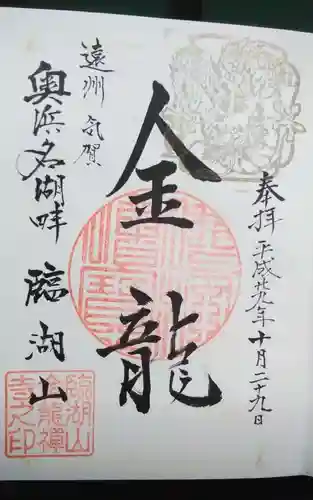 奉拝 平成廿九年十月二十九日
金龍
遠州 気賀
奥浜名湖畔 臨湖山
臨湖山
金龍禅
寺之印